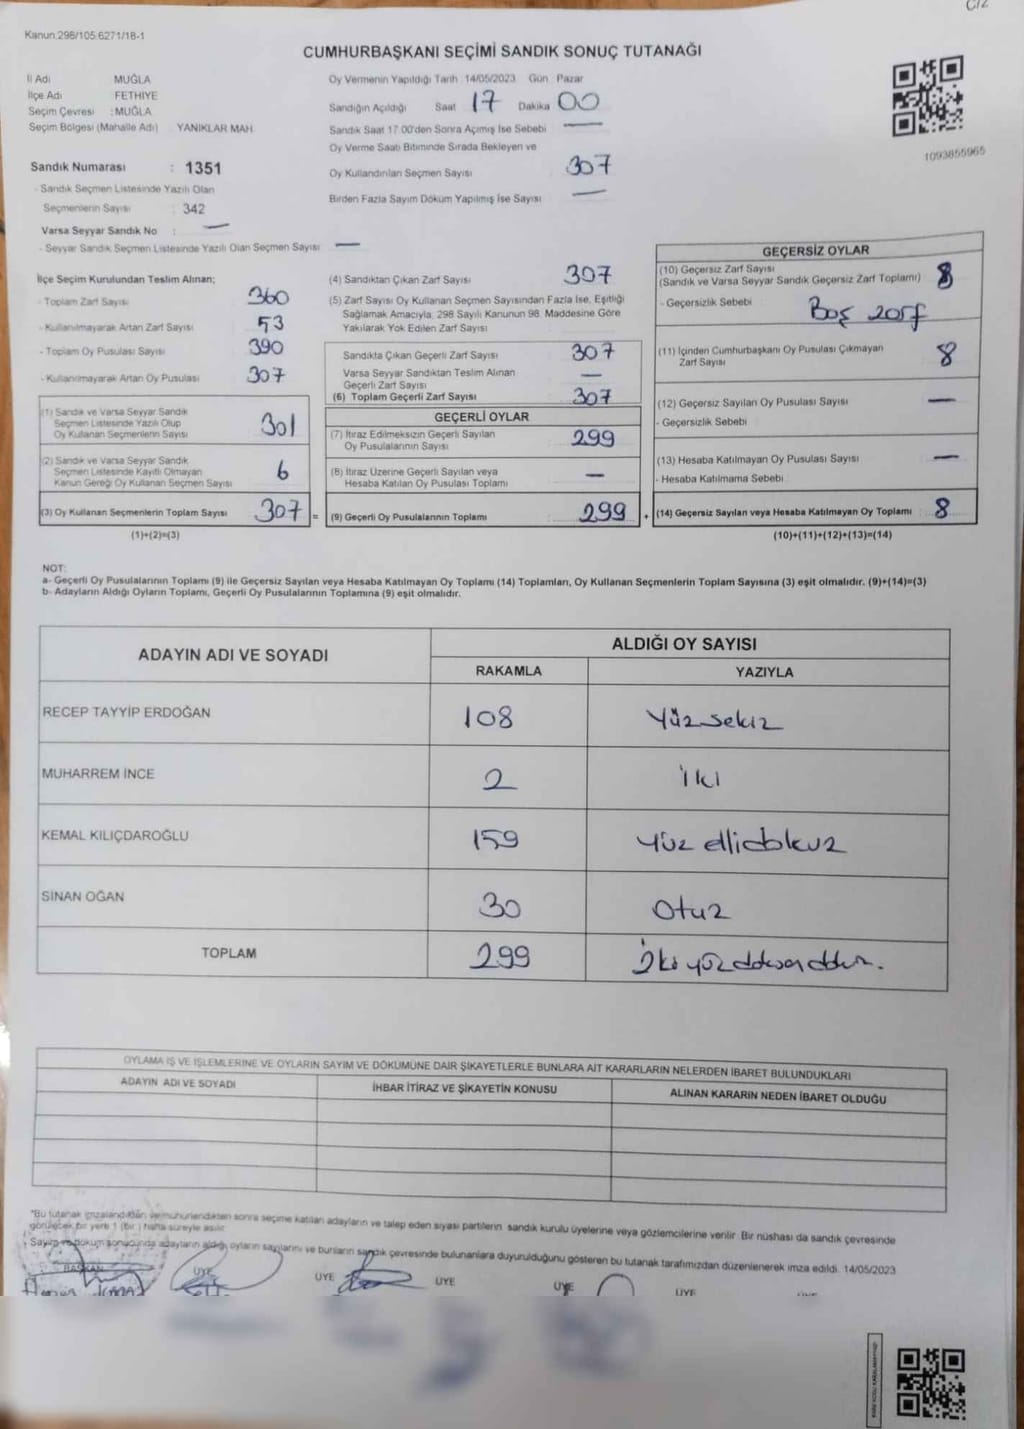 C/2
Kanun.298/105.6271/18-1
CUMHURBAŞKANI SEÇİMİ SANDIK SONUÇ TUTANAĞI
İl Adı MUĞLA
İlçe Adı FETHİYE
Seçim Çevresi : MUĞLA
Seçim Bölgesi (Mahalle Adı) YANIKLAR MAH.
Sandık Numarası : 1351
- Sandık Seçmen Listesinde Yazılı Olan
Seçmenlerin Sayısı : 342
Varsa Seyyar Sandık No : —
- Seyyar Sandık Seçmen Listesinde Yazılı Olan Seçmen Sayısı —
Oy Vermenin Yapıldığı Tarih 14/05/2023 Gün Pazar
Sandığın Açıldığı Saat 17 Dakika 00
Sandık Saat 17.00'den Sonra Açımış İse Sebebi —
Oy Verme Saati Bitiminde Sırada Bekleyen ve
Oy Kullandırılan Seçmen Sayısı 307
Birden Fazla Sayım Döküm Yapılmış İse Sayısı —
1093855965
İlçe Seçim Kurulundan Teslim Alınan;
- Toplam Zarf Sayısı 360
- Kullanılmayarak Artan Zarf Sayısı 53
- Toplam Oy Pusulası Sayısı 390
- Kullanılmayarak Artan Oy Pusulası 307
(1) Sandık ve Varsa Seyyar Sandık
Seçmen Listesinde Yazılı Olup
Oy Kullanan Seçmenlerin Sayısı 301
(2) Sandık ve Varsa Seyyar Sandık
Seçmen Listesinde Kayıtlı Olmayan
Kanun Gereği Oy Kullanan Seçmen Sayısı 6
(3) Oy Kullanan Seçmenlerin Toplam Sayısı 307 =
(1)+(2)=(3)
(4) Sandıktan Çıkan Zarf Sayısı 307
(5) Zarf Sayısı Oy Kullanan Seçmen Sayısından Fazla İse, Eşitliği
Sağlamak Amacıyla; 298 Sayılı Kanunun 98. Maddesine Göre
Yakılarak Yok Edilen Zarf Sayısı
Sandıkta Çıkan Geçerli Zarf Sayısı 307
Varsa Seyyar Sandıktan Teslim Alınan
Geçerli Zarf Sayısı —
(6) Toplam Geçerli Zarf Sayısı 307
GEÇERLİ OYLAR
(7) İtiraz Edilmeksizin Geçerli Sayılan
Oy Pusulalarının Sayısı 299
(8) İtiraz Üzerine Geçerli Sayılan veya
Hesaba Katılan Oy Pusulası Toplamı —
(9) Geçerli Oy Pusulalarının Toplamı 299 +
GEÇERSİZ OYLAR
(10) Geçersiz Zarf Sayısı
(Sandık ve Varsa Seyyar Sandık Geçersiz Zarf Toplamı) 8
- Geçersizlik Sebebi Boş zarf
(11) İçinden Cumhurbaşkanı Oy Pusulası Çıkmayan
Zarf Sayısı 8
(12) Geçersiz Sayılan Oy Pusulası Sayısı —
- Geçersizlik Sebebi
(13) Hesaba Katılmayan Oy Pusulası Sayısı —
- Hesaba Katılmama Sebebi
(14) Geçersiz Sayılan veya Hesaba Katılmayan Oy Toplamı : 8
(10)+(11)+(12)+(13)=(14)
NOT:
a- Geçerli Oy Pusulalarının Toplamı (9) ile Geçersiz Sayılan veya Hesaba Katılmayan Oy Toplamı (14) Toplamları, Oy Kullanan Seçmenlerin Toplam Sayısına (3) eşit olmalıdır. (9)+(14)=(3)
b- Adayların Aldığı Oyların Toplamı, Geçerli Oy Pusulalarının Toplamına (9) eşit olmalıdır.
ADAYIN ADI VE SOYADI ALDIĞI OY SAYISI
RAKAMLA YAZIYLA
RECEP TAYYİP ERDOĞAN 108 Yüzsekiz
MUHARREM İNCE 2 iki
KEMAL KILIÇDAROĞLU 159 Yüz ellidokuz
SİNAN OĞAN 30 Otuz
TOPLAM 299 İkiyüzdoksandokuz.
OYLAMA İŞ VE İŞLEMLERİNE VE OYLARIN SAYIM VE DÖKÜMÜNE DAİR ŞİKAYETLERLE BUNLARA AİT KARARLARIN NELERDEN İBARET BULUNDUKLARI
ADAYIN ADI VE SOYADI İHBAR İTİRAZ VE ŞİKAYETİN KONUSU ALINAN KARARIN NEDEN İBARET OLDUĞU
*Bu tutanak imzalandıktan ve mühürlendikten sonra seçime katılan adayların ve talep eden siyasi partilerin sandık kurulu üyelerine veya gözlemcilerine verilir. Bir nüshası da sandık çevresinde
görülecek bir yere 1 (bir) hafta süreyle asılır.
Sayım ve döküm sonucunda adayların aldığı oyların sayılarını ve bunların sandık çevresinde bulunanlara duyurulduğunu gösteren bu tutanak tarafımızdan düzenlenerek imza edildi. 14/05/2023
BAŞKAN ÜYE ÜYE ÜYE ÜYE ÜYE